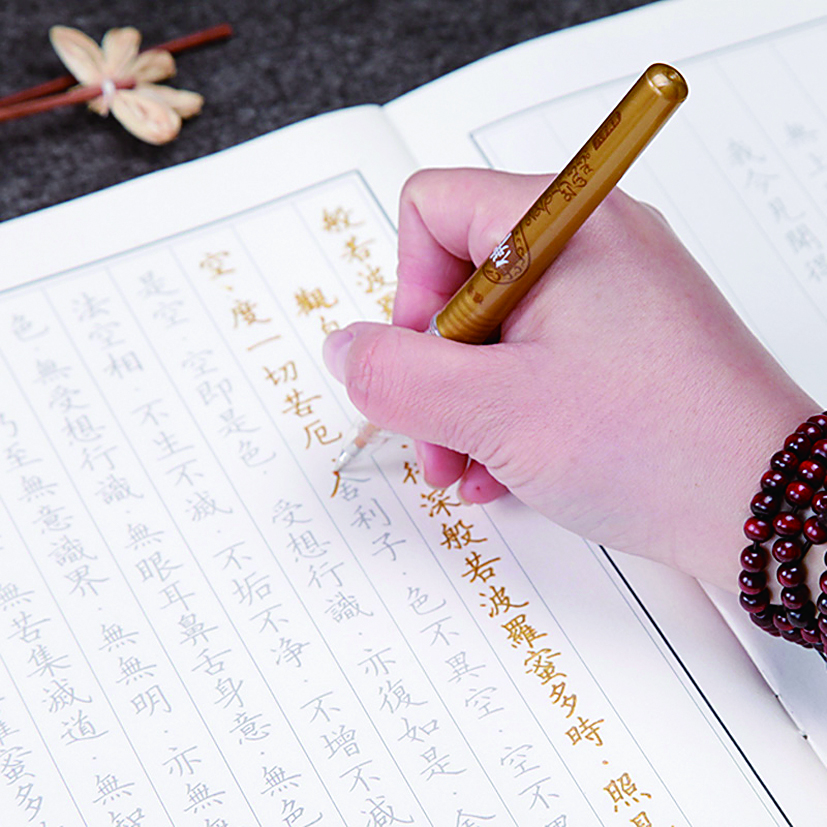 無上
我今見聞得
般若波
觀自
行深般若波羅蜜多時·照見
空·度一切苦厄·舍利子·色不異空·空不異
是空·空即是色·受想行識·亦復如是·舍
法空相·不生不滅·不垢不净·不增不減
色·無受想行識·無眼耳鼻舌身意·無色
乃至無意識界·無無明·亦無
無苦集滅道·無智
羅蜜多